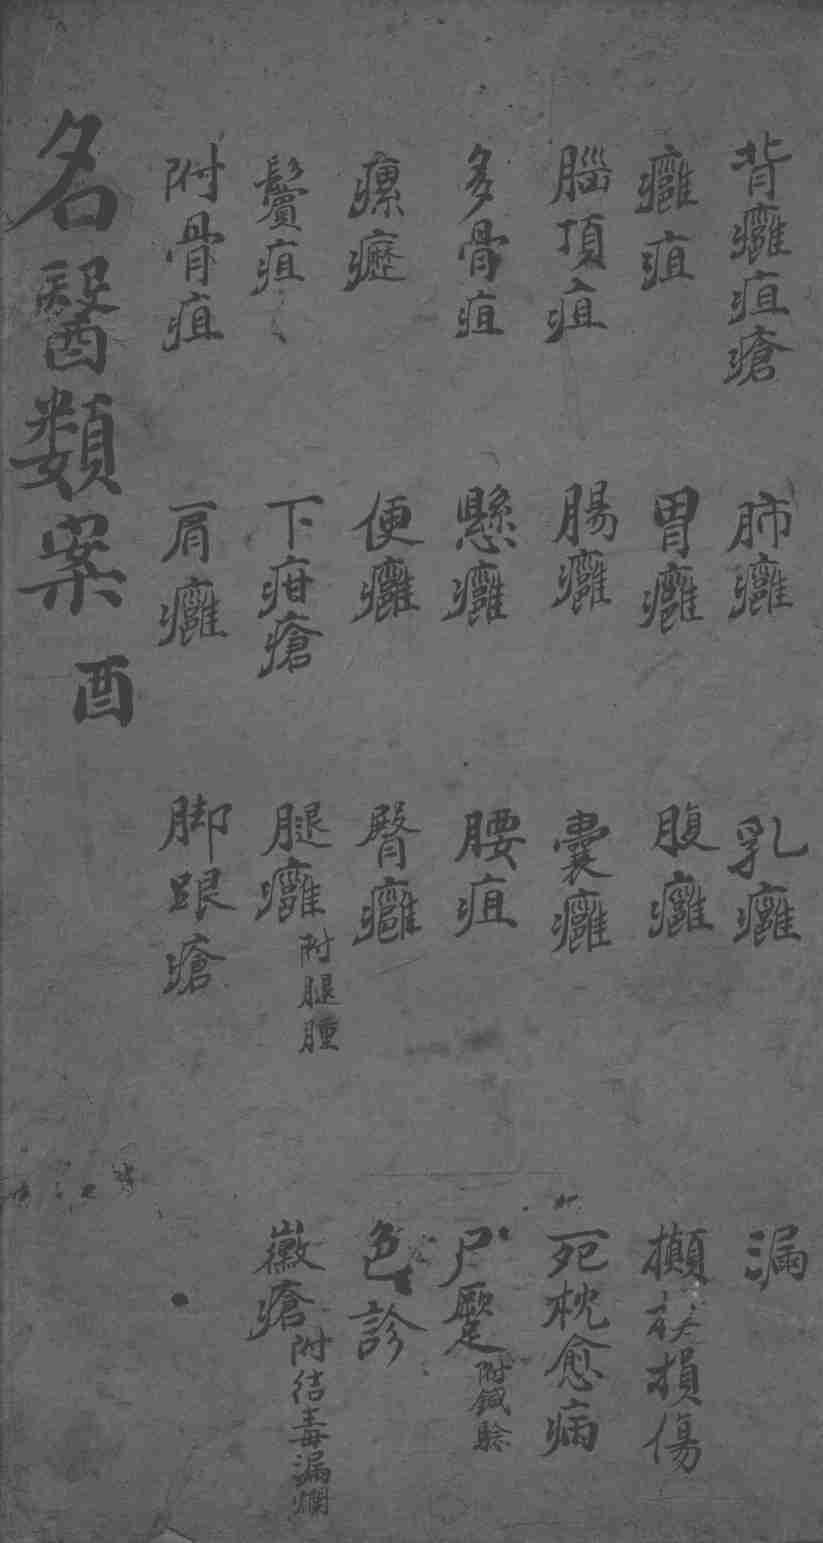 背癰疽瘡 肺癰 乳癰 漏
癰疽 胃癰 腹癰 攧損傷
腦頂疽 腸癰 囊癰 死枕愈病
多骨疽 懸癰 腰疽 尸蹷 附鍼驗
瘰癧 便癰 臀癰 色診
鬢疽 下疳瘡 腿癰 附腿腫 黴瘡 附結毒漏爛
附骨疽 肩癰 脚跟瘡
名醫類案 酉